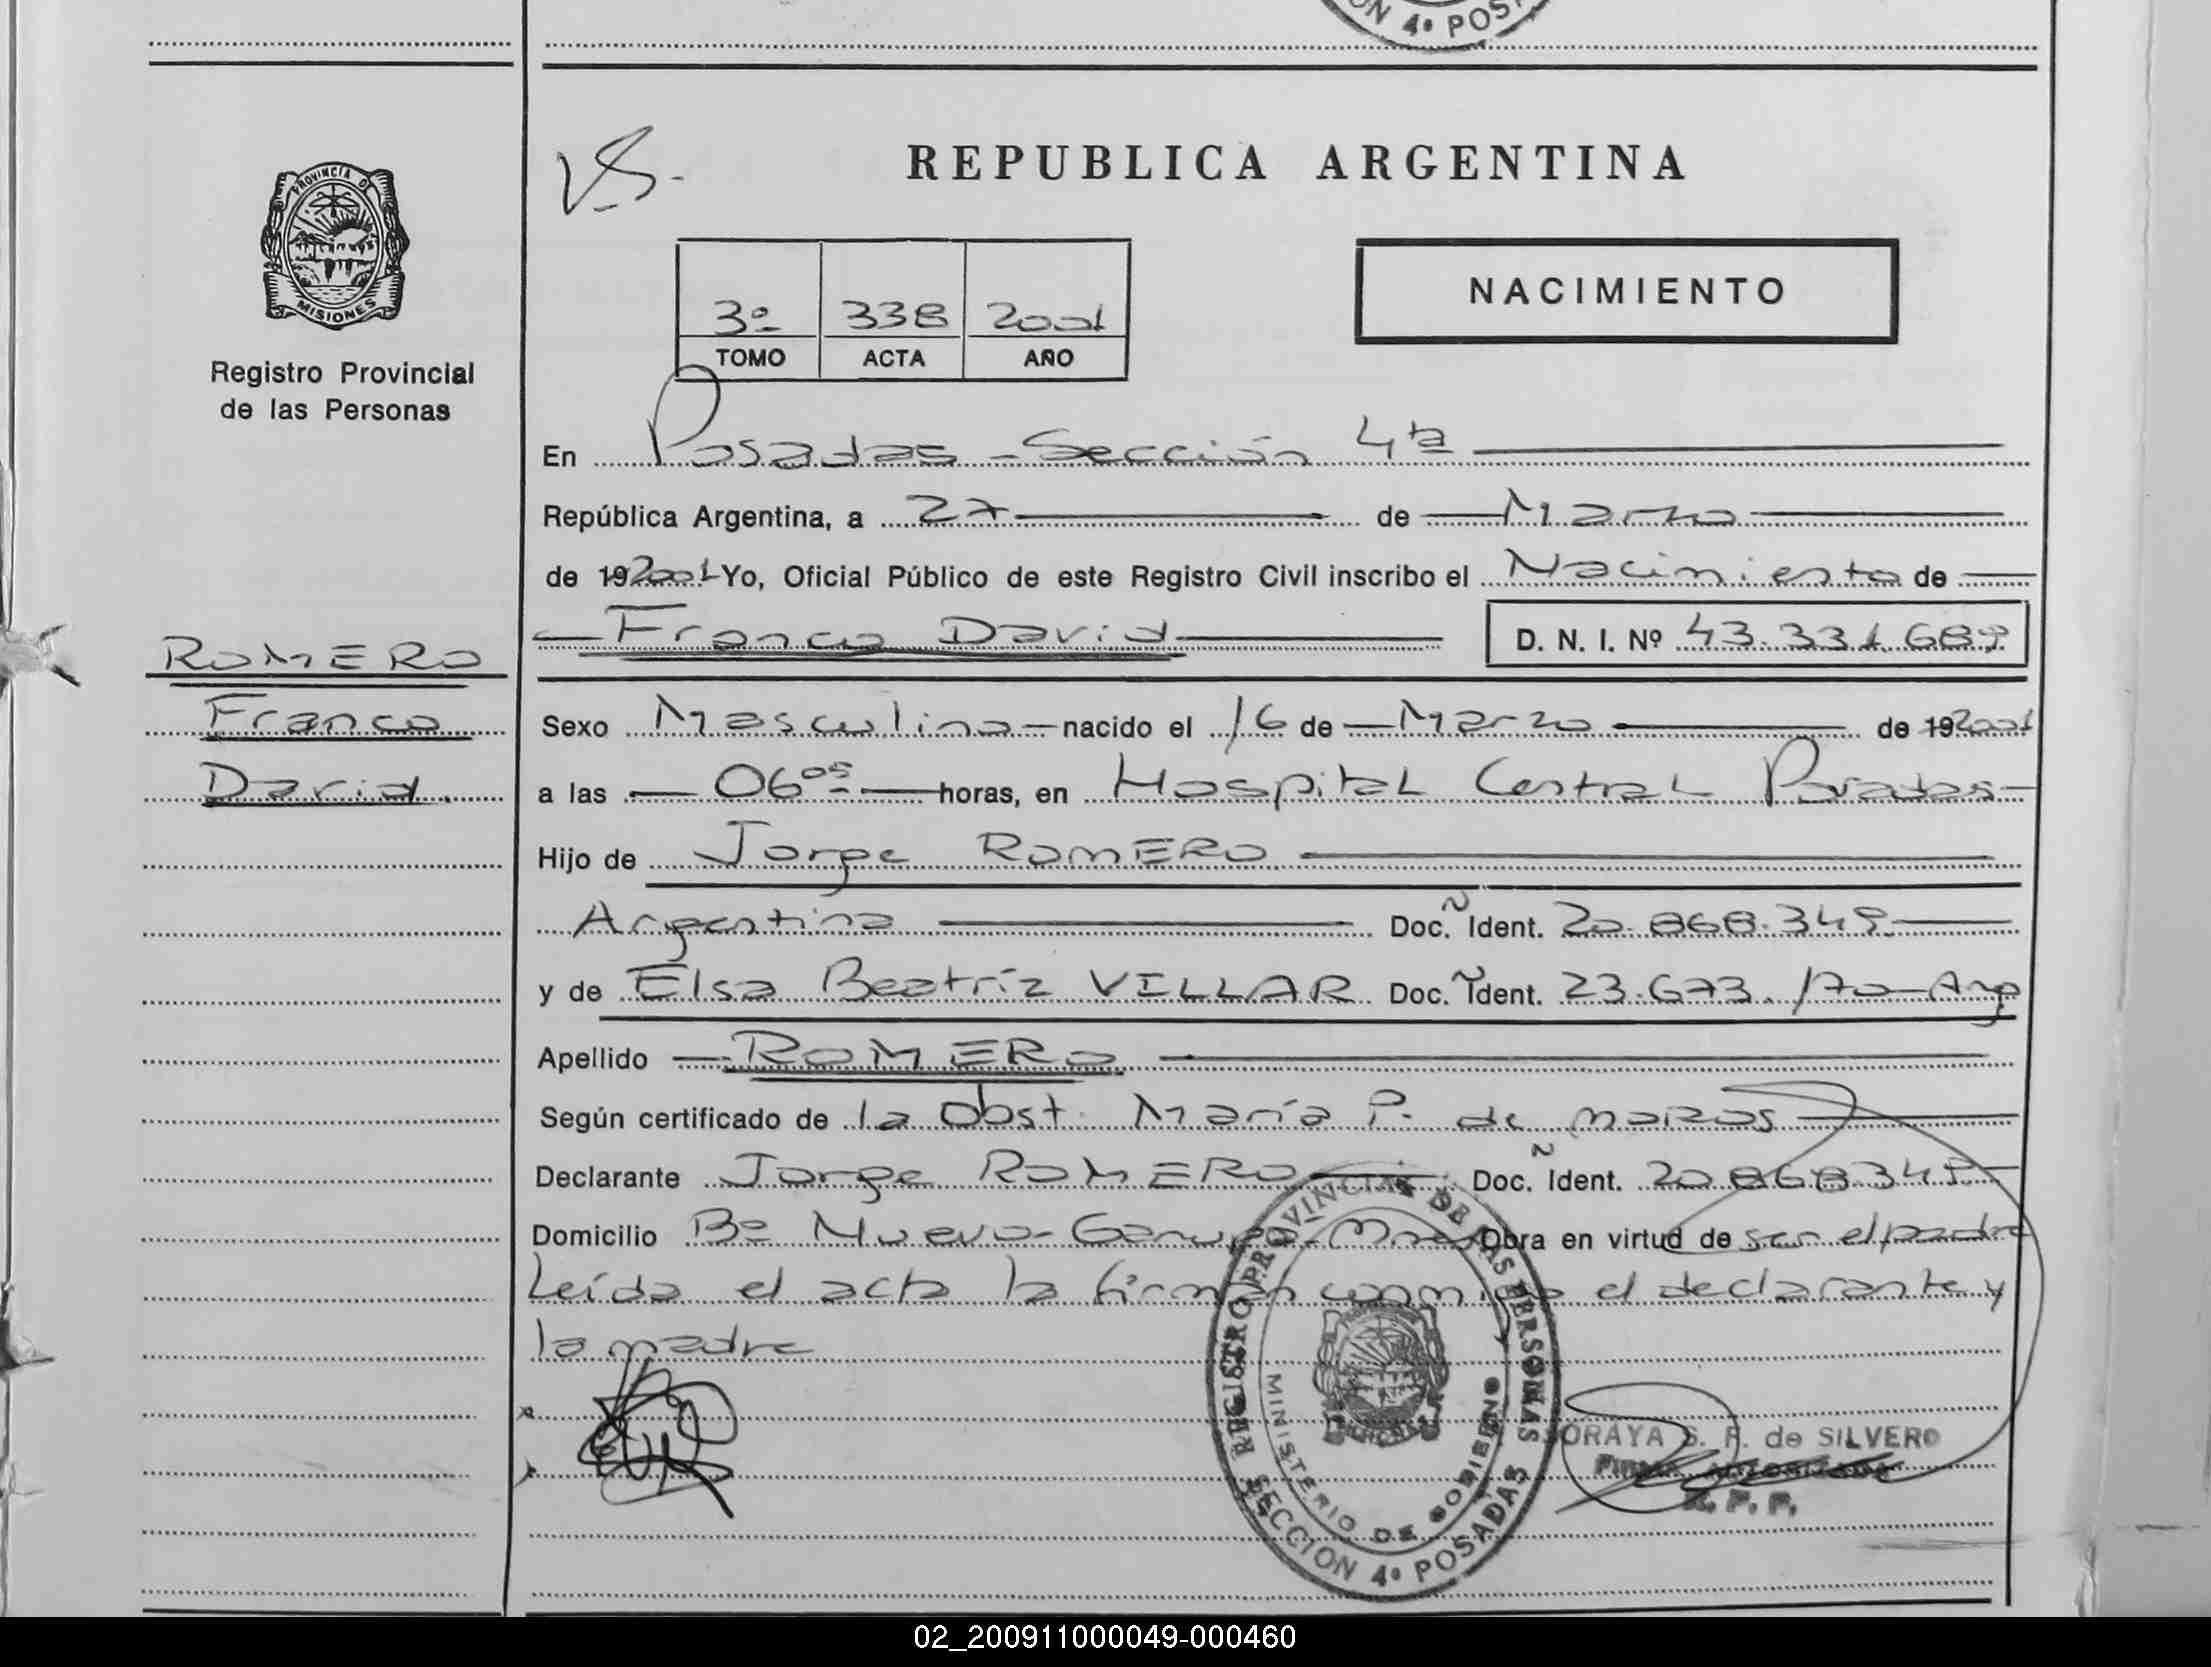 ON 4º POS
REPUBLICA ARGENTINA
PROVINCIA D
MISIONES
Registro Provincial
de las Personas
NACIMIENTO
3º 338 2001
TOMO ACTA AÑO
En Posadas - Sección 4ta
República Argentina, a 27 de Marzo
de 19 2001 Yo, Oficial Público de este Registro Civil inscribo el Nacimiento de
Franco David D. N. I. Nº 43.331.689
ROMERO
Franco
David.
Sexo Masculino nacido el 16 de Marzo de 19 2001
a las 06 05 horas, en Hospital Central Posadas
Hijo de Jorge ROMERO
Argentina Doc. Ident. 20.868.349
y de Elsa Beatríz VILLAR Doc. Ident. 23.673.170 - Arg
Apellido ROMERO
Según certificado de la Obst. María P. de MOIZAS
Declarante Jorge ROMERO Doc. Ident. 20.868.349
Domicilio Bº Nuevo - Garupá - Mnes Obra en virtud de ser el padre
Leída el acta la firman conmigo el declarante y
la madre
REGISTRO PROVINCIAL DE LAS PERSONAS
MINISTERIO DE GOBIERNO
SECCION 4º POSADAS
SORAYA S. F. de SILVERO
FIRMA AUTORIZADA
R. P. P.
02_200911000049-000460